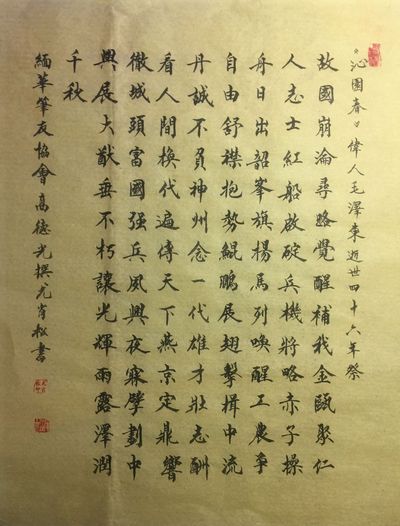 《沁園春》偉人毛澤東逝世四十六年祭
故國崩淪尋路覺醒補我金甌聚仁
人志士紅船啟碇兵機將略赤子操
舟日出韶峯旗揚馬列喚醒工農爭
自由舒襟抱勢鯤鵬展翅擊楫中流
丹誠不負神州念一代雄才壯志酬
看人間換代遍傳天下燕京定鼎響
徹城頭富國强兵夙興夜寐擘劃中
興展大猷垂不朽讓光輝雨露澤潤
千秋
緬華筆友協會高德光撰尤肖松書